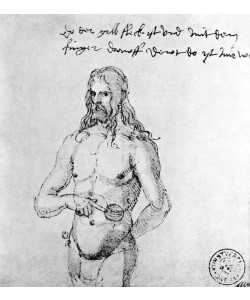 do der gelb fleck yst vnd mit dem
finger drawff dewt do yst mir we